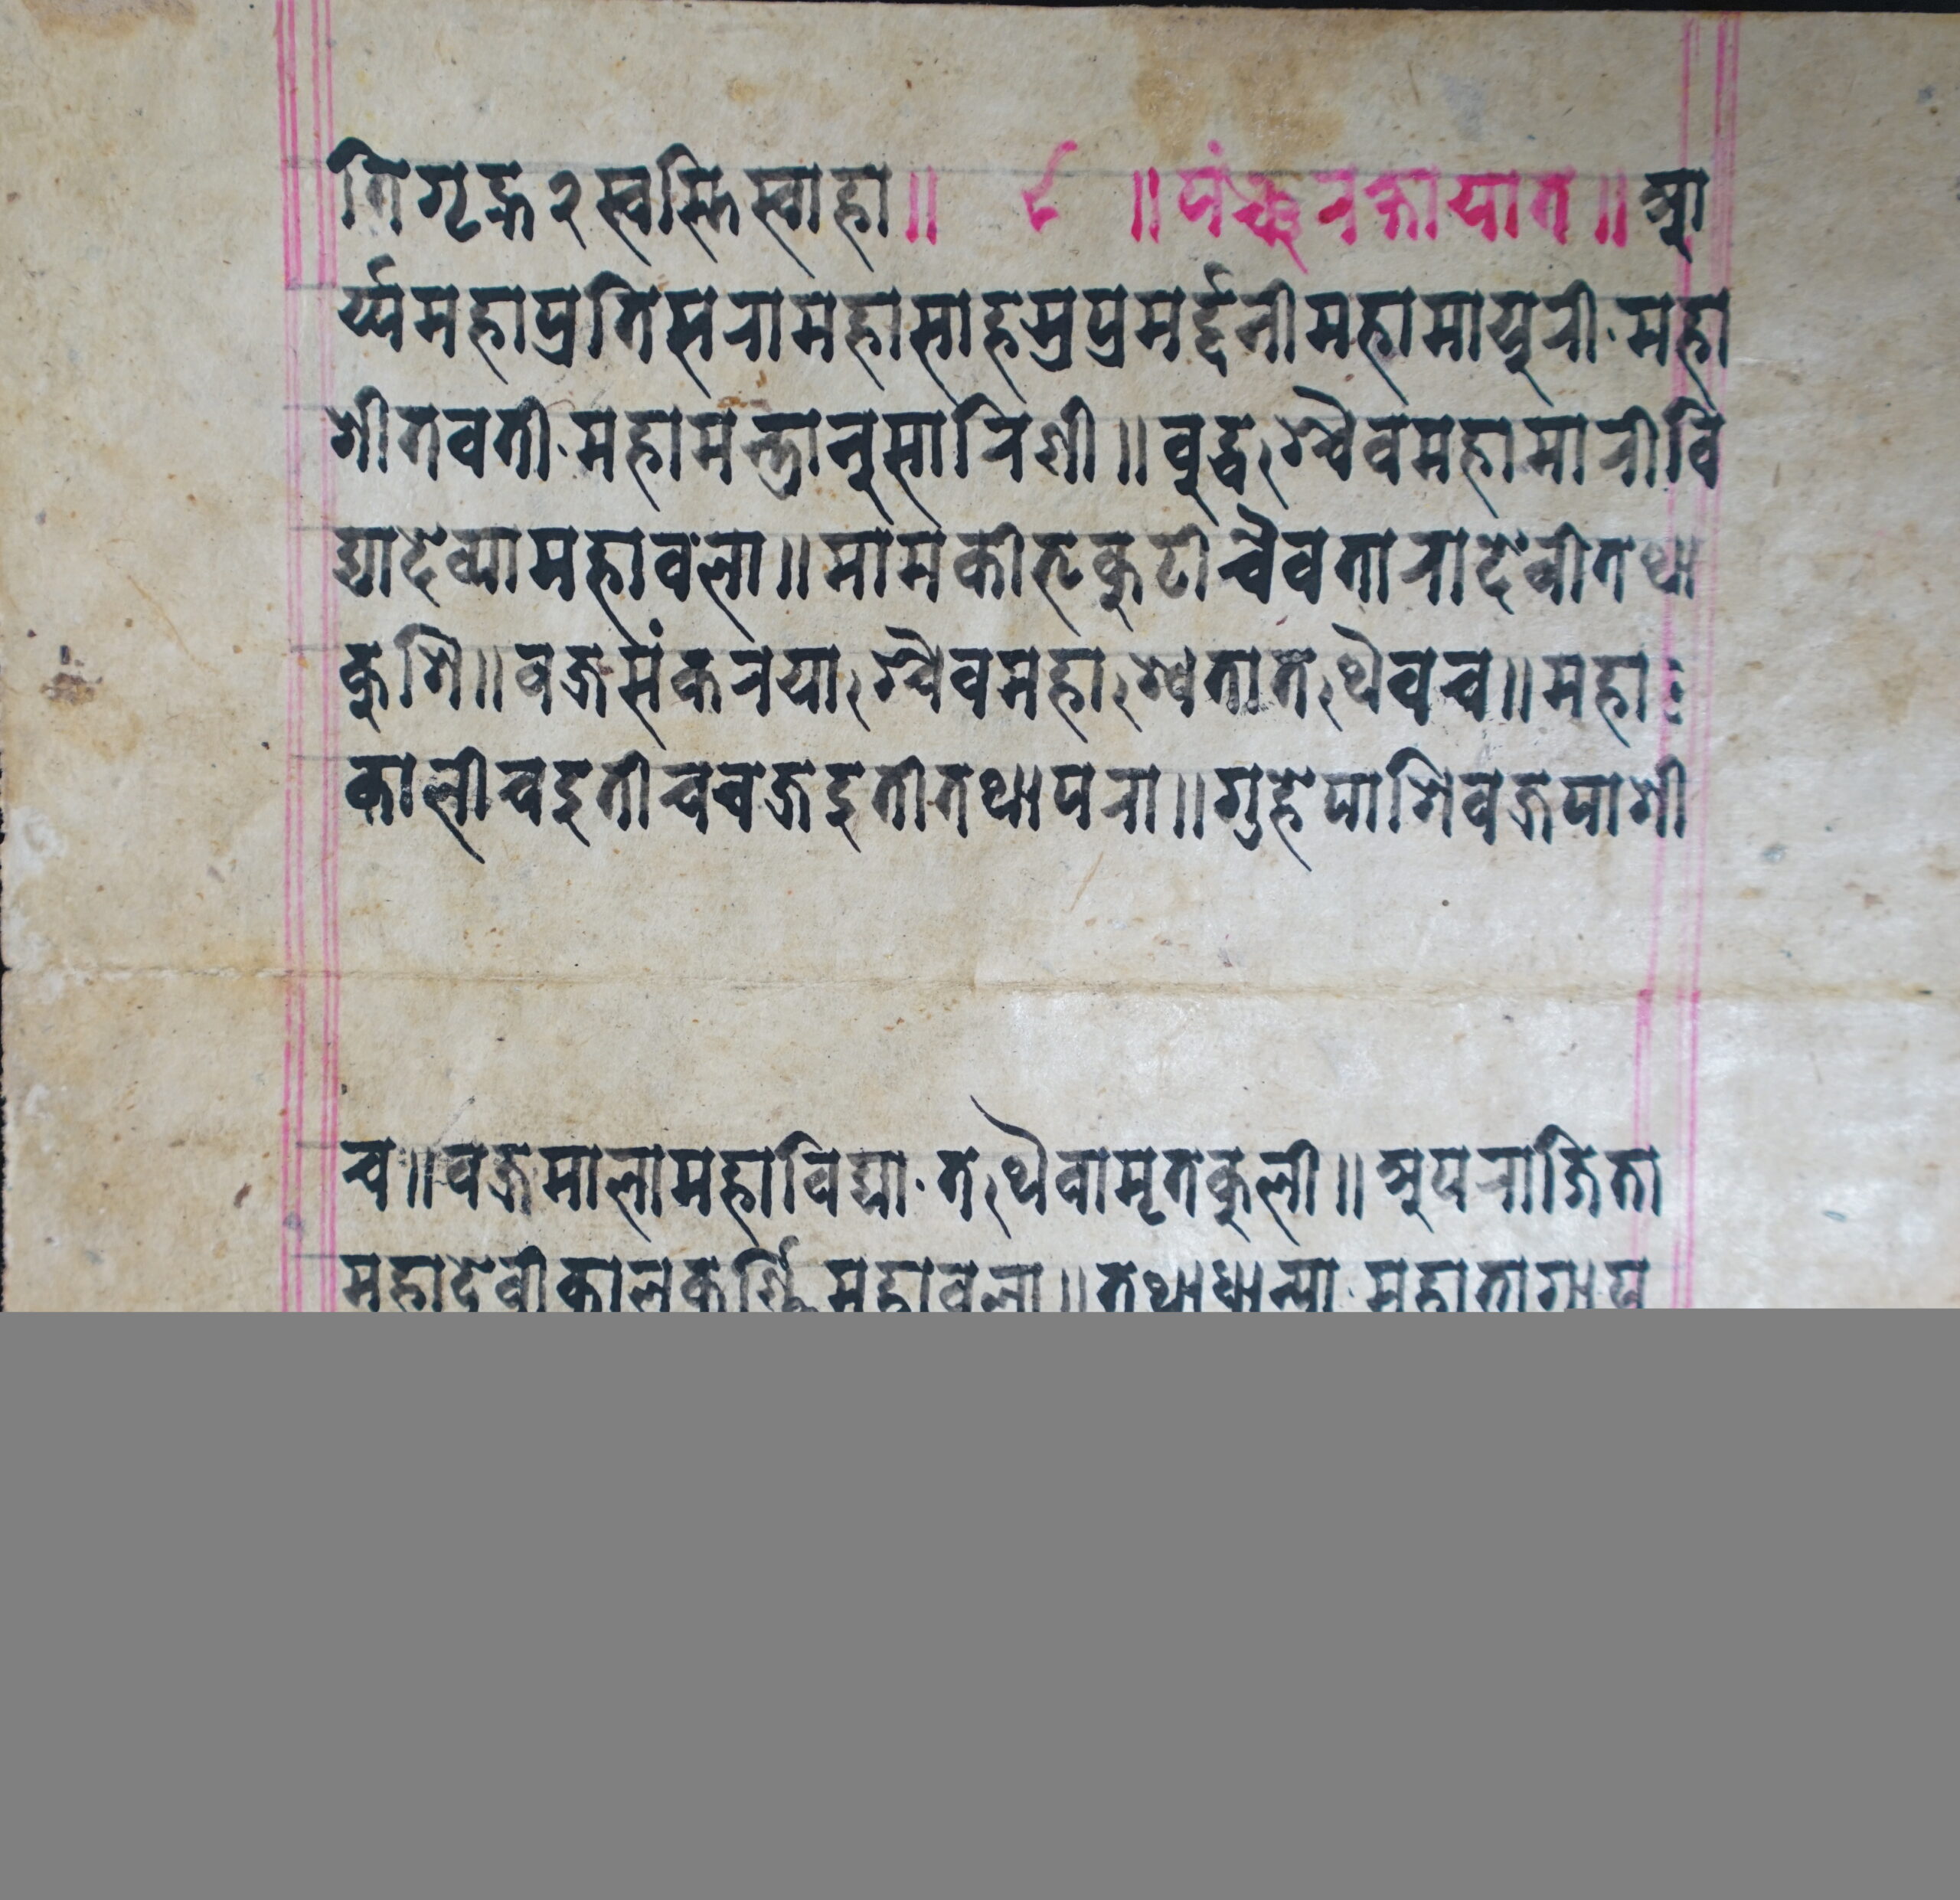 तिगृह्न२स्वस्तिस्वाहा॥ ८ ॥पंञ्चरक्षायात॥आ
र्य्यमहाप्रतिसरामहासाहस्रप्रमर्द्दनीमहामायुरी·महा
शीतवती·महामन्त्रानुसारिणी॥बुद्धश्चैवमहामारीवि
द्यादेव्यामहावला॥मामकीभृकुटीचैवतारादेवीतथा
कुशि॥वज्रसंकरयाश्चैवमहाश्वेतातथैवच॥महा
कालीचदुतीचवज्रदुतीतथापरा॥गुह्येपाशिवज्रपाशी
च॥वज्रमालामहाविद्या·तथैवामृतकुली॥अपराजिता
महादेवीकालकर्ण्णिमहावला॥तथाधान्या·महाभागाप